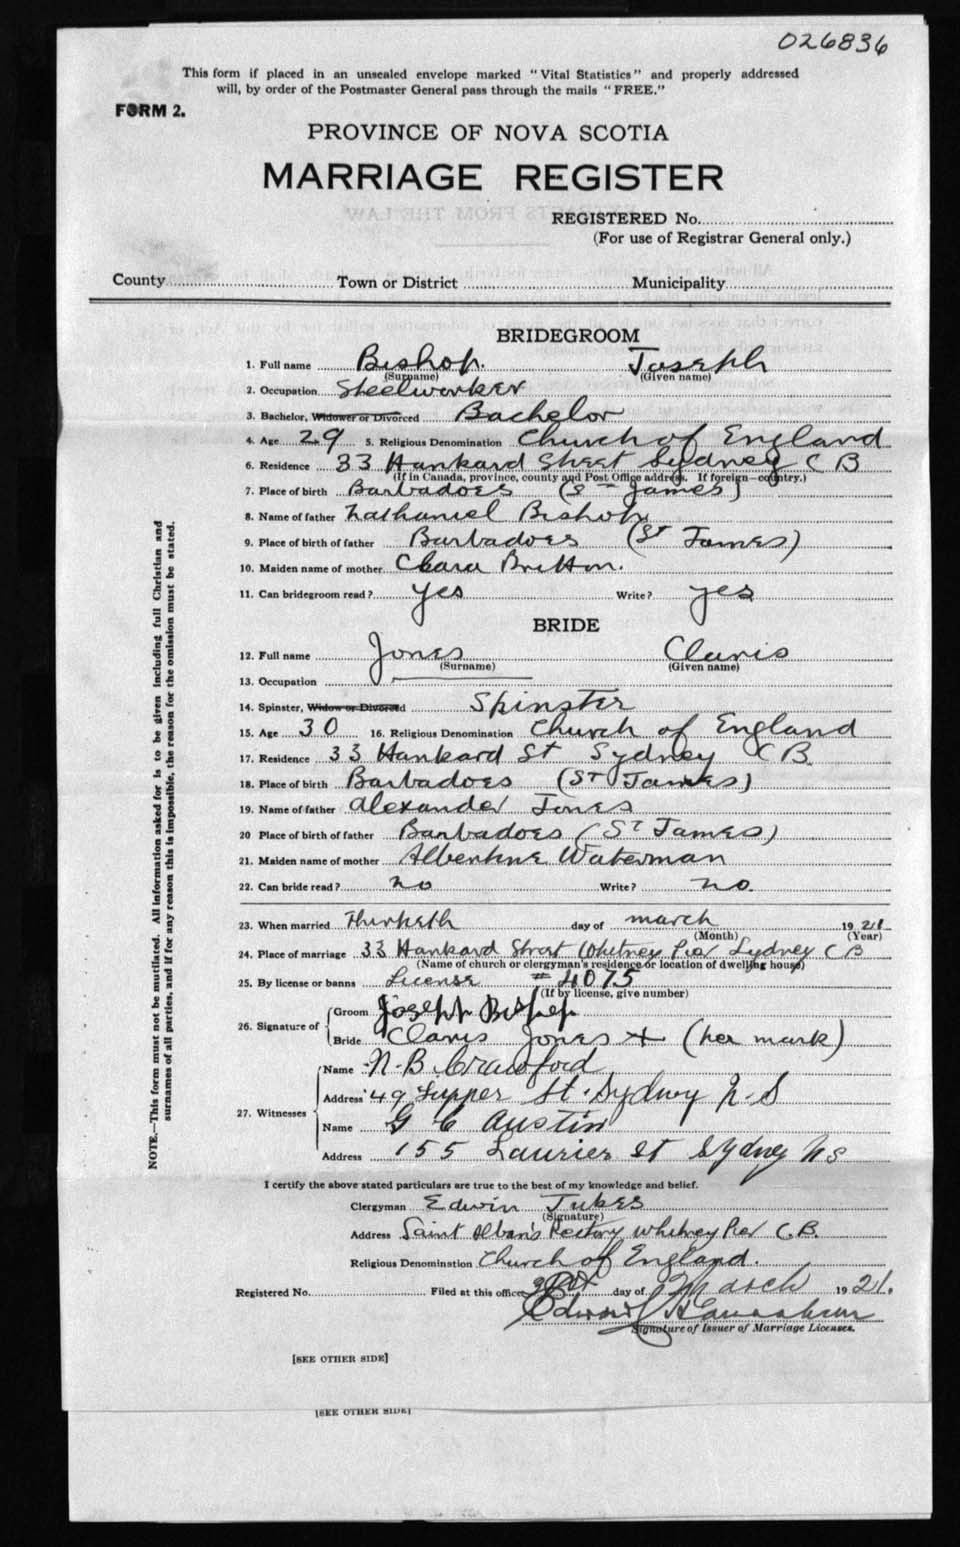 026836
This form if placed in an unsealed envelope marked "Vital Statistics" and properly addressed
will, by order of the Postmaster General pass through the mails "FREE."
FORM 2.
PROVINCE OF NOVA SCOTIA
MARRIAGE REGISTER
REGISTERED No.
(For use of Registrar General only.)
County Town or District Municipality
BRIDEGROOM
1. Full name Bishop. Joseph
(Surname) (Given name)
2. Occupation Steelworker
3. Bachelor, Widower or Divorced Bachelor
4. Age 29 5. Religious Denomination Church of England
6. Residence 33 Hankard Street Sydney C B
(If in Canada, province, county and Post Office address. If foreign—country.)
7. Place of birth Barbadoes (St James)
8. Name of father Nathaniel Bishop
9. Place of birth of father Barbadoes (St James)
10. Maiden name of mother Clara Britton.
11. Can bridegroom read? yes Write? yes
BRIDE
12. Full name Jones Claris
(Surname) (Given name)
13. Occupation
14. Spinster, Widow or Divorced Spinster
15. Age 30 16. Religious Denomination Church of England
17. Residence 33 Hankard St Sydney C B.
18. Place of birth Barbadoes (St James)
19. Name of father Alexander Jones
20 Place of birth of father Barbadoes (St James)
21. Maiden name of mother Albertine Waterman
22. Can bride read? no Write? no.
23. When married Thirtieth day of march 1921
(Month) (Year)
24. Place of marriage 33 Hankard Street Whitney Pier Sydney C B
(Name of church or clergyman's residence or location of dwelling house)
25. By license or banns License # 4075
(If by license, give number)
26. Signature of Groom Joseph Bishop
Bride Claris Jones + (her mark)
27. Witnesses
Name N. B. Crawford
Address 49 Tupper St. Sydney N.S
Name G C Austin
Address 155 Laurier St Sydney NS
I certify the above stated particulars are true to the best of my knowledge and belief.
Clergyman Edwin Jukes
(Signature)
Address Saint Alban's Rectory Whitney Pier C.B.
Religious Denomination Church of England.
Registered No. Filed at this office day of March 1921.
Edward
Signature of Issuer of Marriage Licenses.
[SEE OTHER SIDE]
[SEE OTHER SIDE]
NOTE.—This form must not be mutilated. All information asked for is to be given including full Christian and
surnames of all parties, and if for any reason this is impossible, the reason for the omission must be stated.